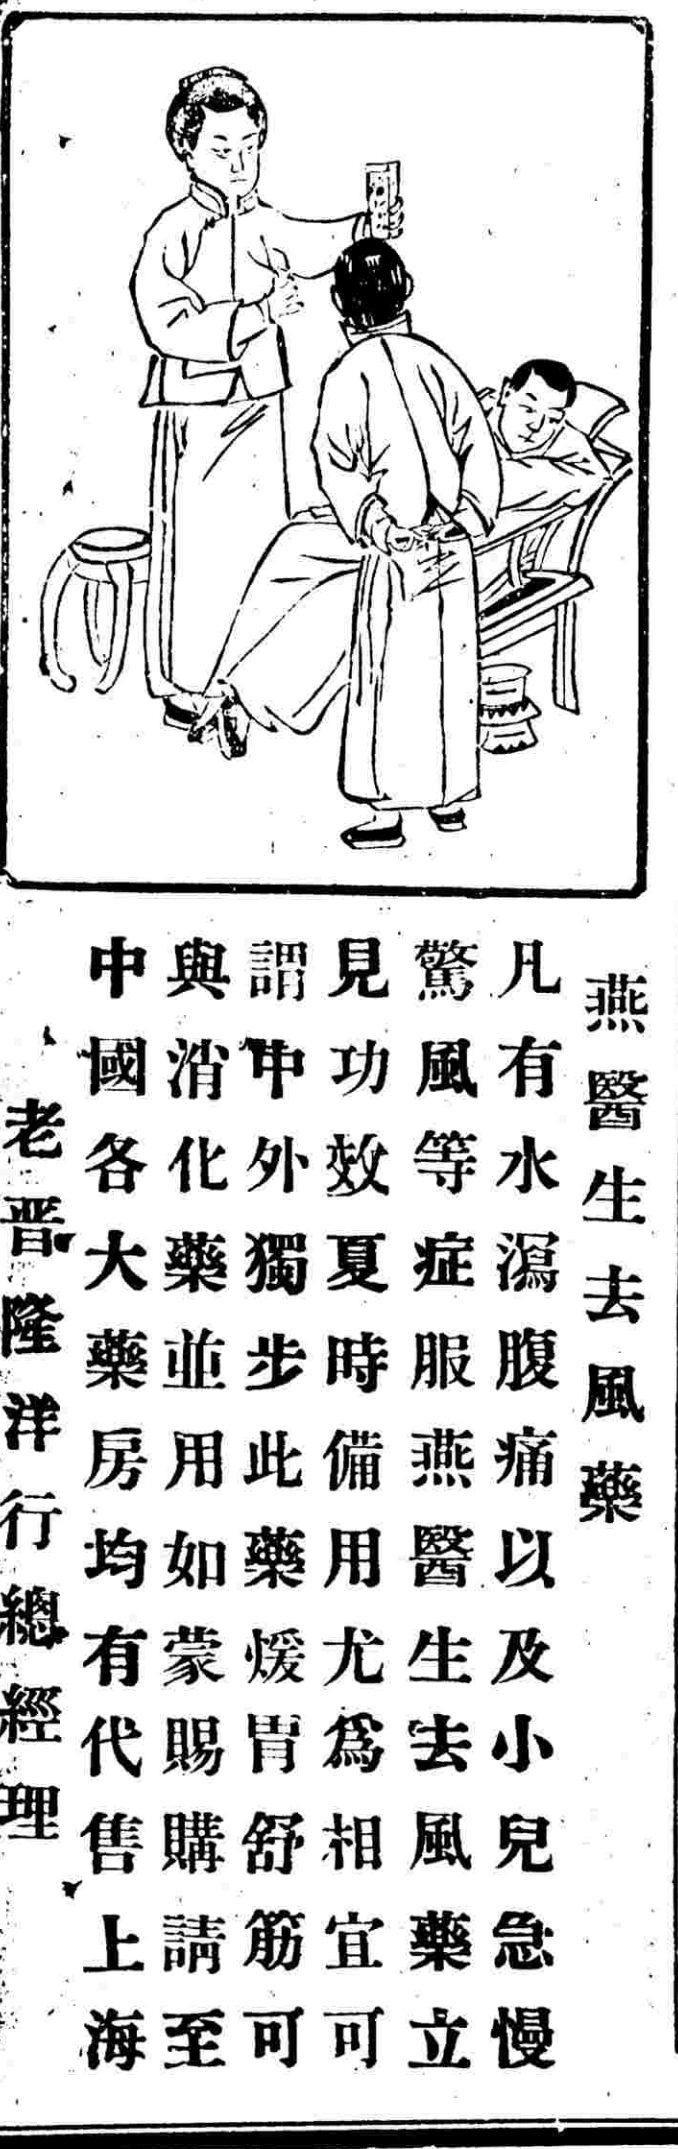 燕醫生去風藥
凡有水瀉腹痛以及小兒急慢
驚風等症服燕醫生去風藥立
見功效夏時備用尤爲相宜可
謂中外獨步此藥煖胃舒筋可
與消化藥並用如蒙賜購請至
中國各大藥房均有代售上海
老晋隆洋行總經理